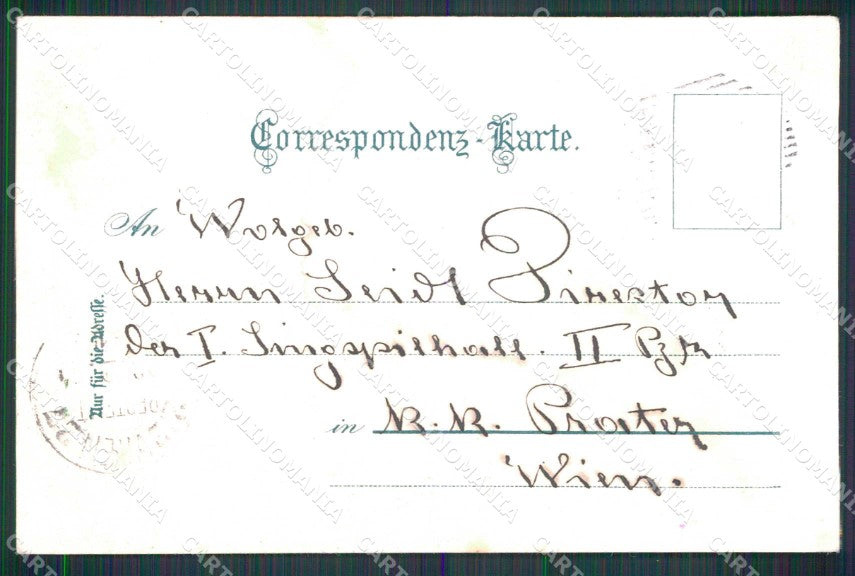 Correspondenz-Karte.
An Wolgeb.
Herrn Seidl Director
der I. Singspilhall. II Bzk
in K. K. Prater
Wien.
Nur für die Adresse.
CARTOLINOMANIA